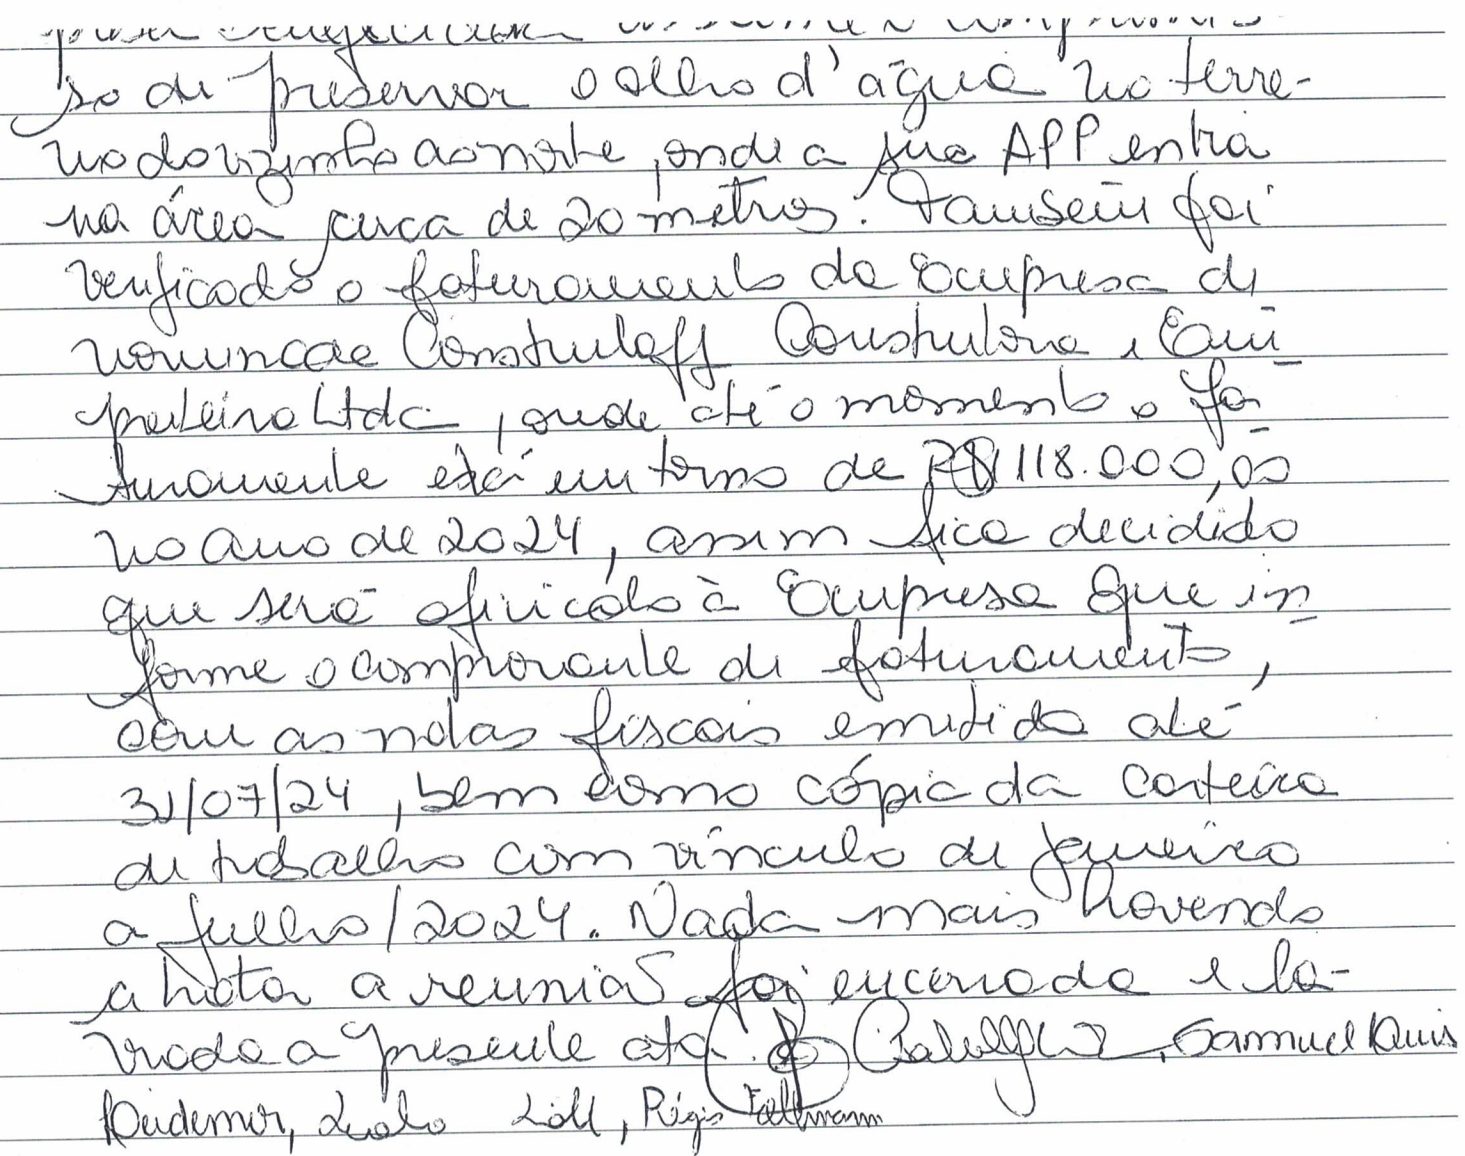 so de preservar o olho d'água no terre-
no do vizinho ao norte, onde a sua APP entra
na área cerca de 20 metros. Também foi
verificado o faturamento da Empresa de
nominada Construleff Construtora e Em
preiteira Ltda, onde até o momento o fa
turamente está em torno de R$ 118.000,00
no ano de 2024, assim fica decidido
que será oficiado à Empresa que in
forme o comprovante de faturamento,
com as notas fiscais emitida até
31/07/24, bem como cópia da carteira
de trabalho com vínculo de janeiro
a julho/2024. Nada mais havendo
a tratar a reunião foi encerrada e la-
vrada a presente ata. Samuel Luis
Régis Feltmann